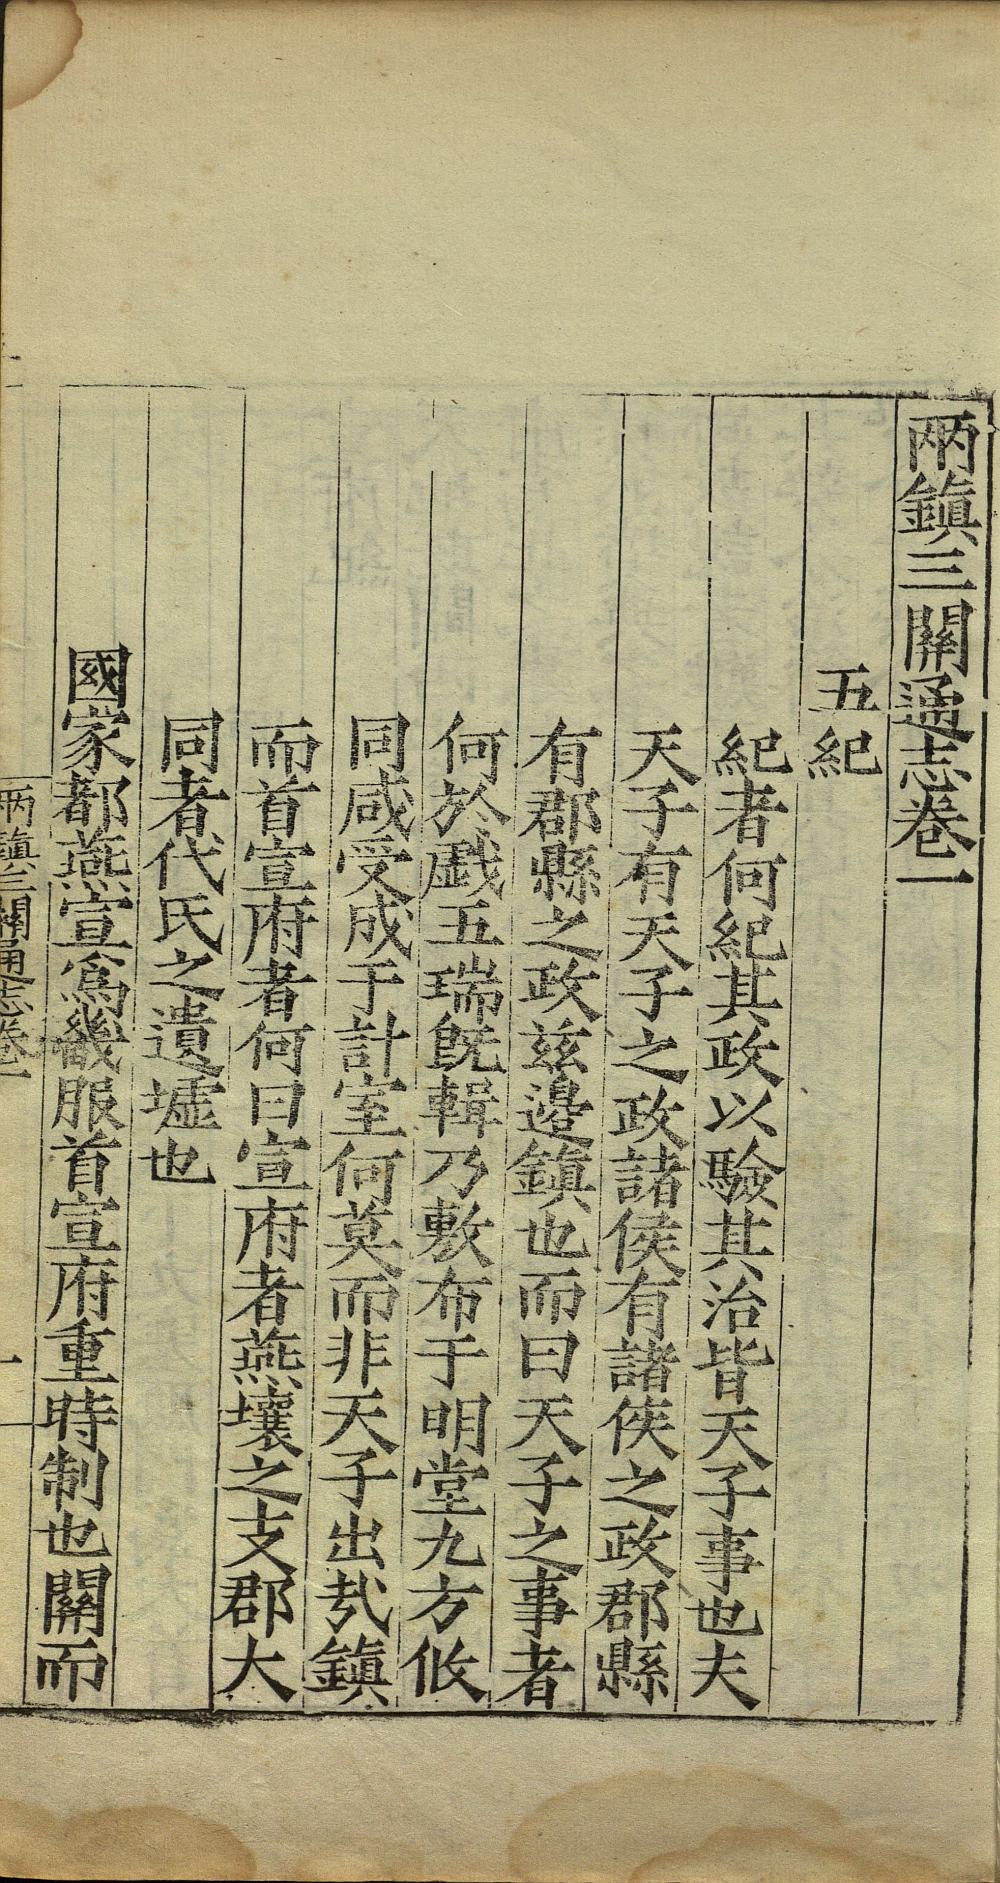 兩鎮三關通志卷一
五紀
紀者何紀其政以驗其治皆天子事也夫
天子有天子之政諸侯有諸侯之政郡縣
有郡縣之政茲邊鎮也而曰天子之事者
何於戱五瑞旣輯乃敷布于明堂九方攸
同咸受成于計室何莫而非天子出㢤鎮
而首宣府者何曰宣府者燕壤之支郡大
同者代氏之遺墟也
國家都燕宣爲畿服首宣府重時制也關而
兩鎮三關通志卷一
一